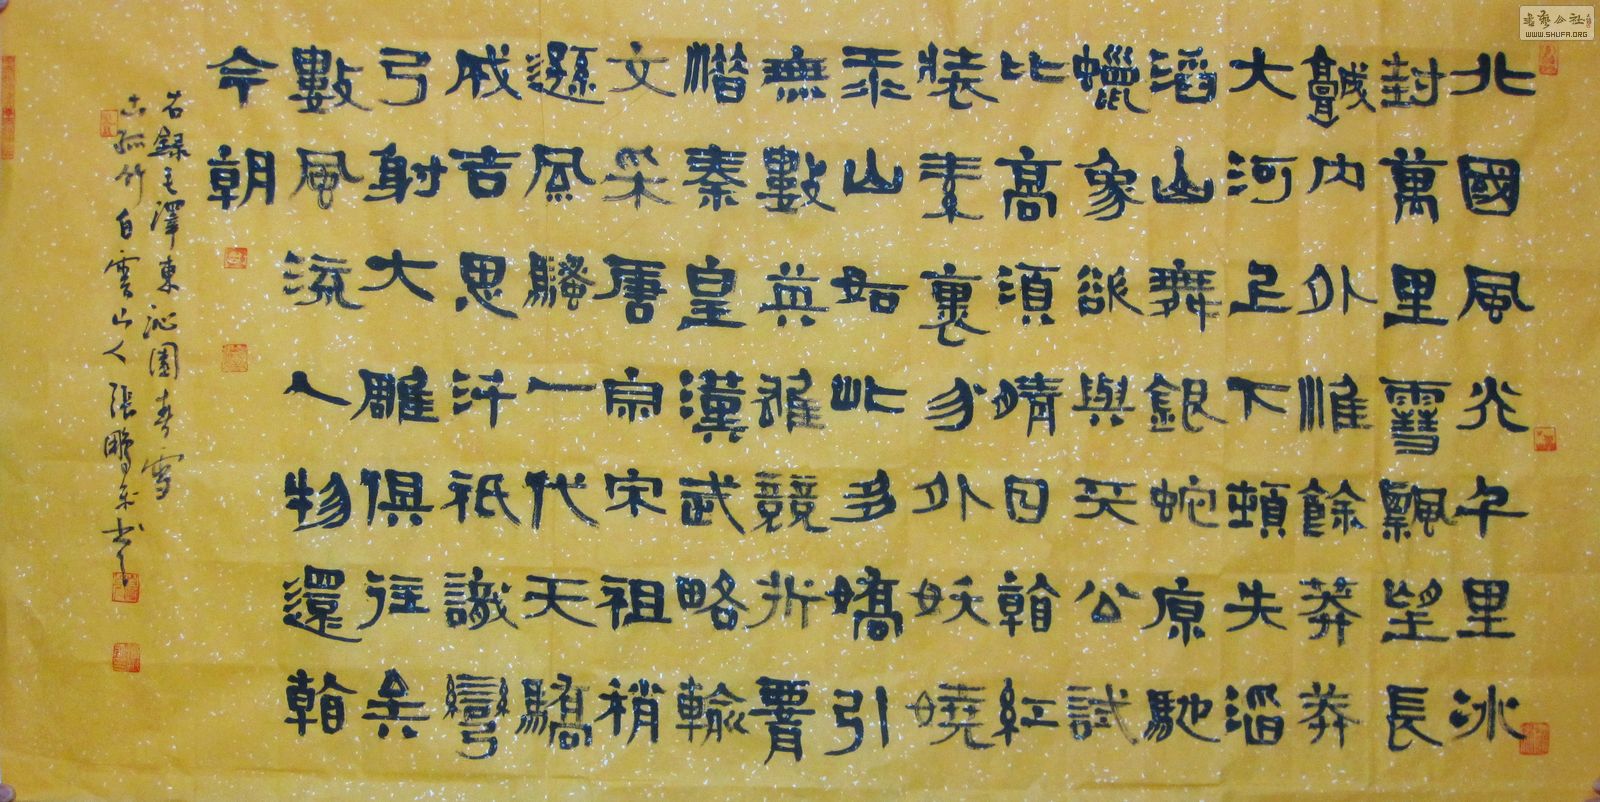 北國風光千里冰
封萬里雪飄望長
城内外惟餘莽莽
大河上下頓失滔
滔山舞銀蛇原馳
蠟象欲與天公試
比高須晴日看紅
裝素裹分外妖嬈
江山如此多嬌引
無數英雄競折腰
惜秦皇漢武略輸
文采唐宗宋祖稍
遜風騷一代天驕
成吉思汗祇識彎
弓射大雕俱往矣
數風流人物還看
今朝
右錄毛澤東沁園春雪
古孤竹白雲山人張鵬書
書藝公社
WWW.SHUFA.ORG